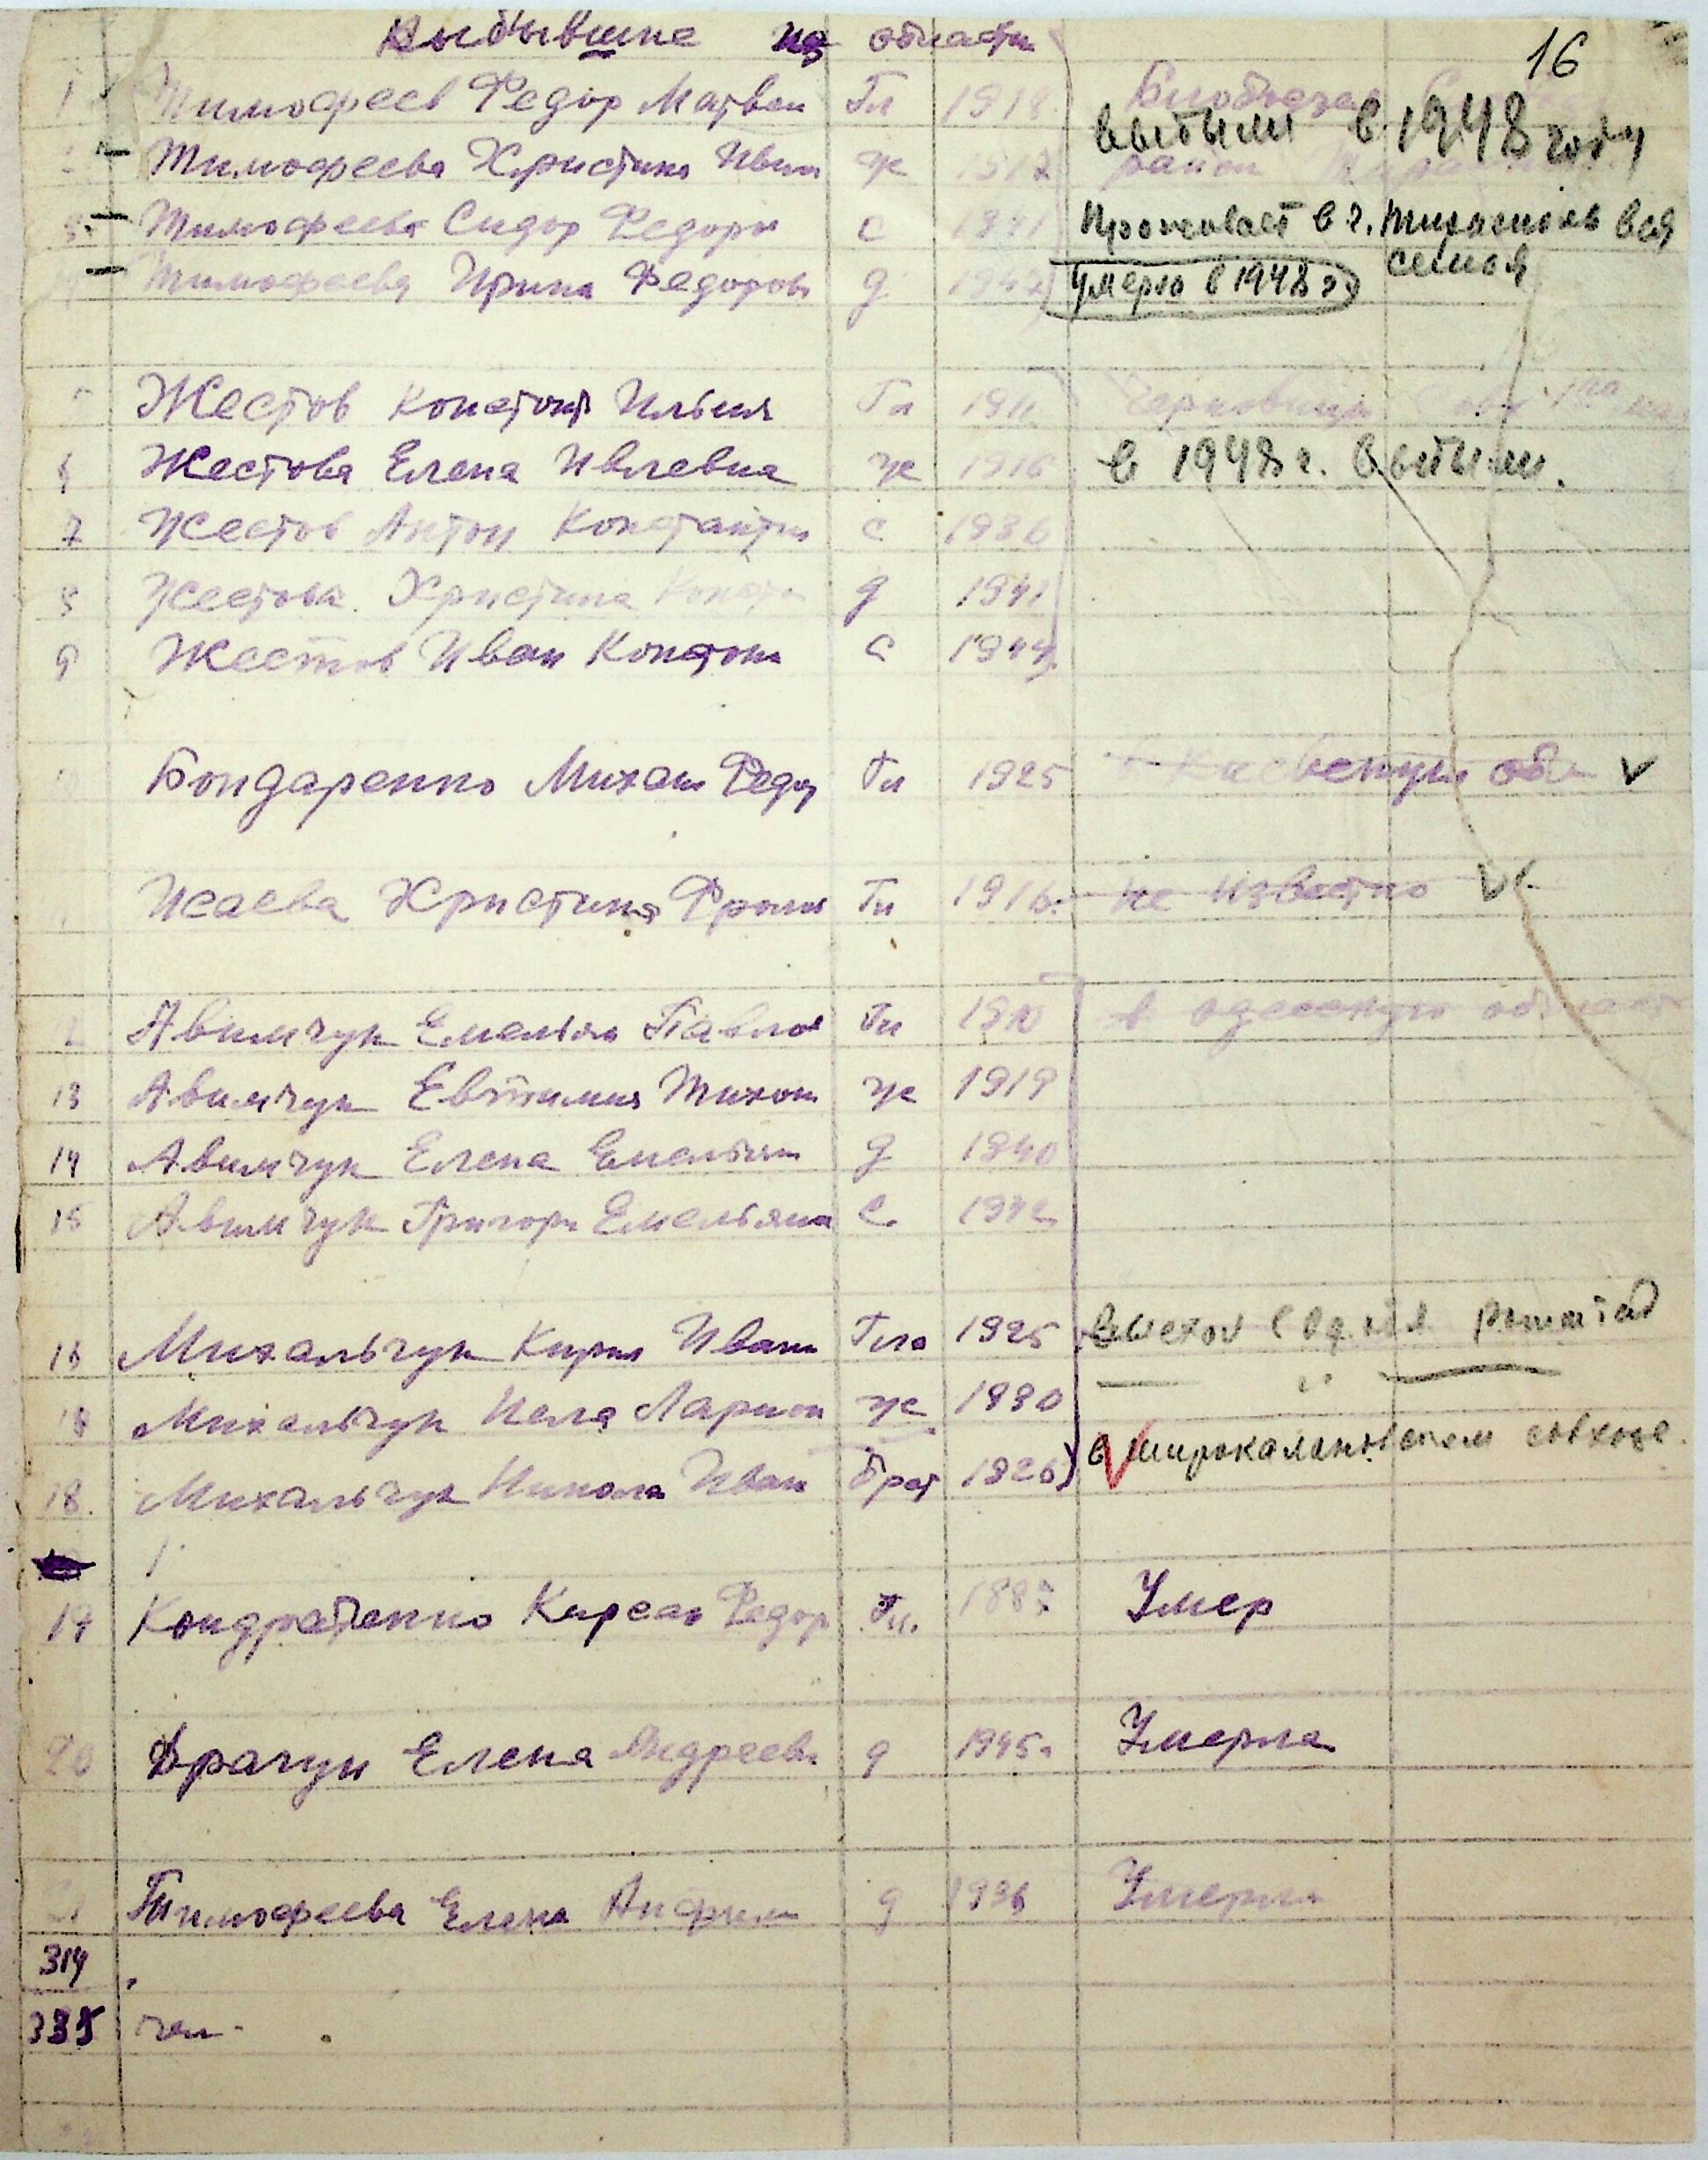 Выбывшие из области
16
1 Тимофеев Федор Матвеи Гл 1918
выбыли в 1948 году
Тимофеева Христина Иван ж 1917 район
3. Тимофеев Сидор Федоро с 1941 Проживает в г. Тирасполь вся семья
Тимофеева Ирина Федоров д 1947 умерла в 1948 г
Жестов Констант Ильич Гл 191
6 Жестова Елена Ивлевна ж 1916 в 1948 г. выбыли.
7 Жестов Антон Константин с 1936
8 Жестова Христина Конста д 1941
9 Жестов Иван Констан с 1944
Бондаренко Михаил Федор Гл 1925 обл
Исаева Христина Фролов Гл 1916. не известно
Авимчук Емельян Павлов Гл 1910 в одесскую область
13 Авимчук Евтимия Тихон ж 1919
14 Авимчук Елена Емельян д 1940
15 Авимчук Григори Емельяна с. 1942
16 Михальчук Кирил Иван Гла 1925
18 Михальчук Ларион ж 1930
в широкалановском совхозе.
18. Михальчук Никола Иван брат 1926
19 Кондратенко Кирсан Федор Гл. 188 Умер
20 Драгун Елена Андреев д 1945. Умерла
21 Тимофеева Елена д 1936 Умерла
314
335 чел.